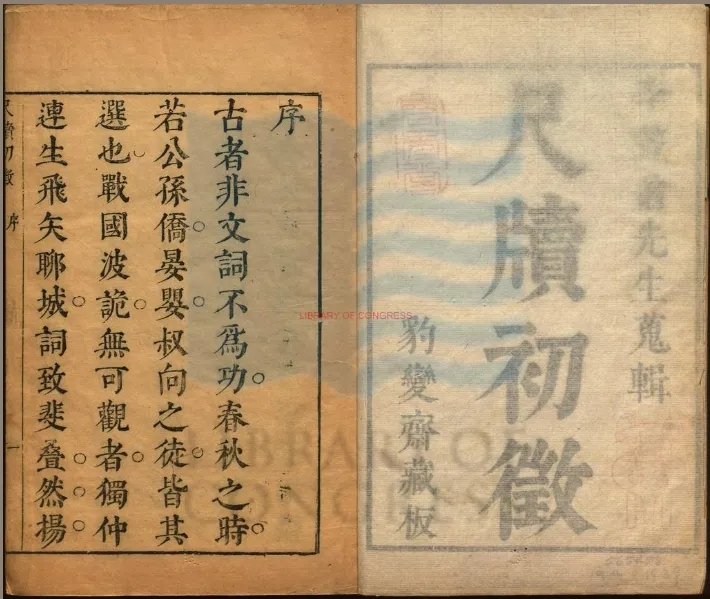 李笠翁先生蒐輯
尺牘初徵
豹變齋藏板
序
古者非文詞不爲功春秋之時
若公孫僑晏嬰叔向之徒皆其
選也戰國波詭無可觀者獨仲
連生飛矢聊城詞致斐疊然揚
尺牘初徵 序 一
LIBRARY OF CONGRESS
LIBRARY OF
CONGRESS